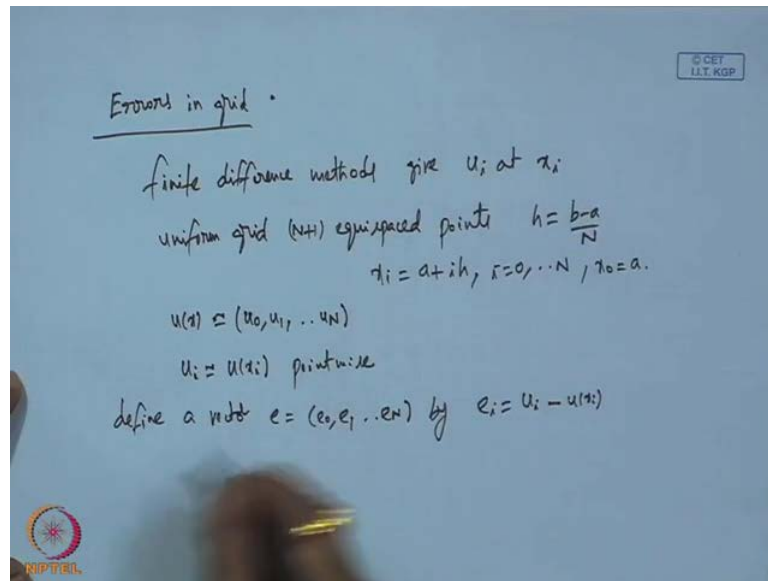 © CET
I.I.T. KGP
Errors in grid .
finite difference methods give uᵢ at xᵢ
uniform grid (N+1) equispaced points h = (b-a)/N
xᵢ = a+ih, i=0, ..N , x₀=a.
u(x) ≃ (u₀, u₁, .. uN)
uᵢ ≃ u(xᵢ) pointwise
define a vector e = (e₀, e₁ .. eN) by eᵢ = uᵢ − u(xᵢ)
NPTEL